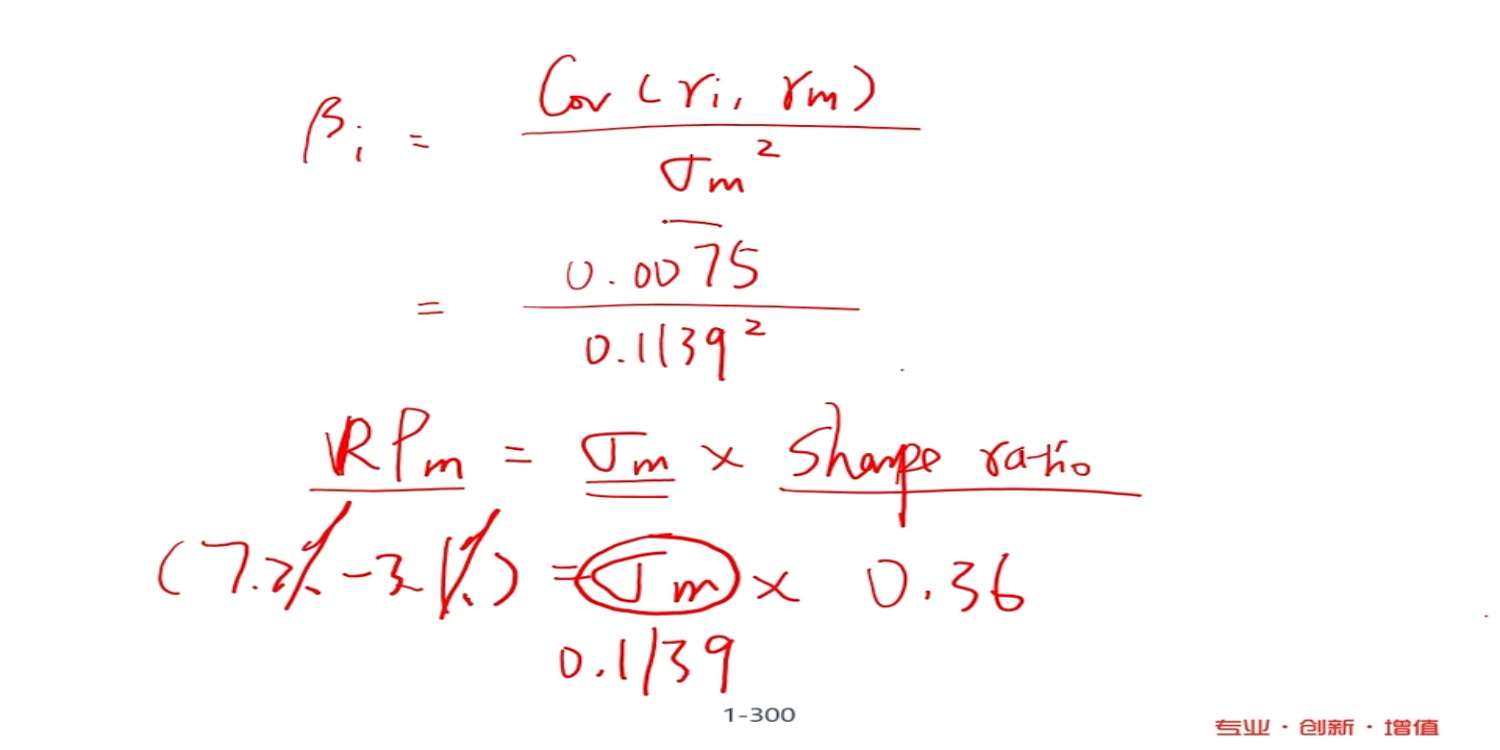 βi = Cov(ri, rm) / σm²
= 0.0075 / 0.1139²
RPm = σm × Sharpe ratio
(7.2% - 3.1%) = σm × 0.36
0.1139
1-300
专业·创新·增值